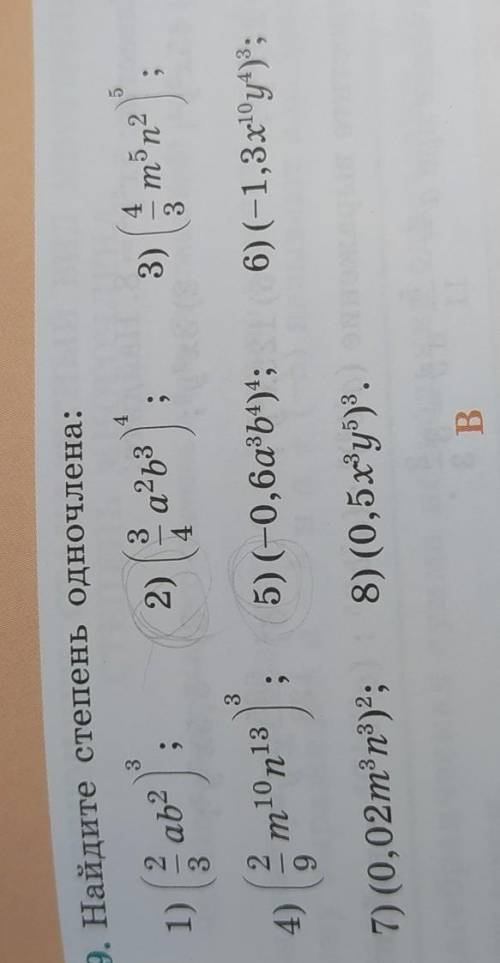 9. Найдите степень одночлена:
1) (2/3 ab²)³; 2) (3/4 a²b³)⁴; 3) (4/3 m⁵n²)⁵;
4) (2/9 m¹⁰n¹³)³; 5) (−0,6a³b⁴)⁴; 6) (−1,3x¹⁰y⁴)³;
7) (0,02m³n³)²; 8) (0,5x³y⁵)³.
В